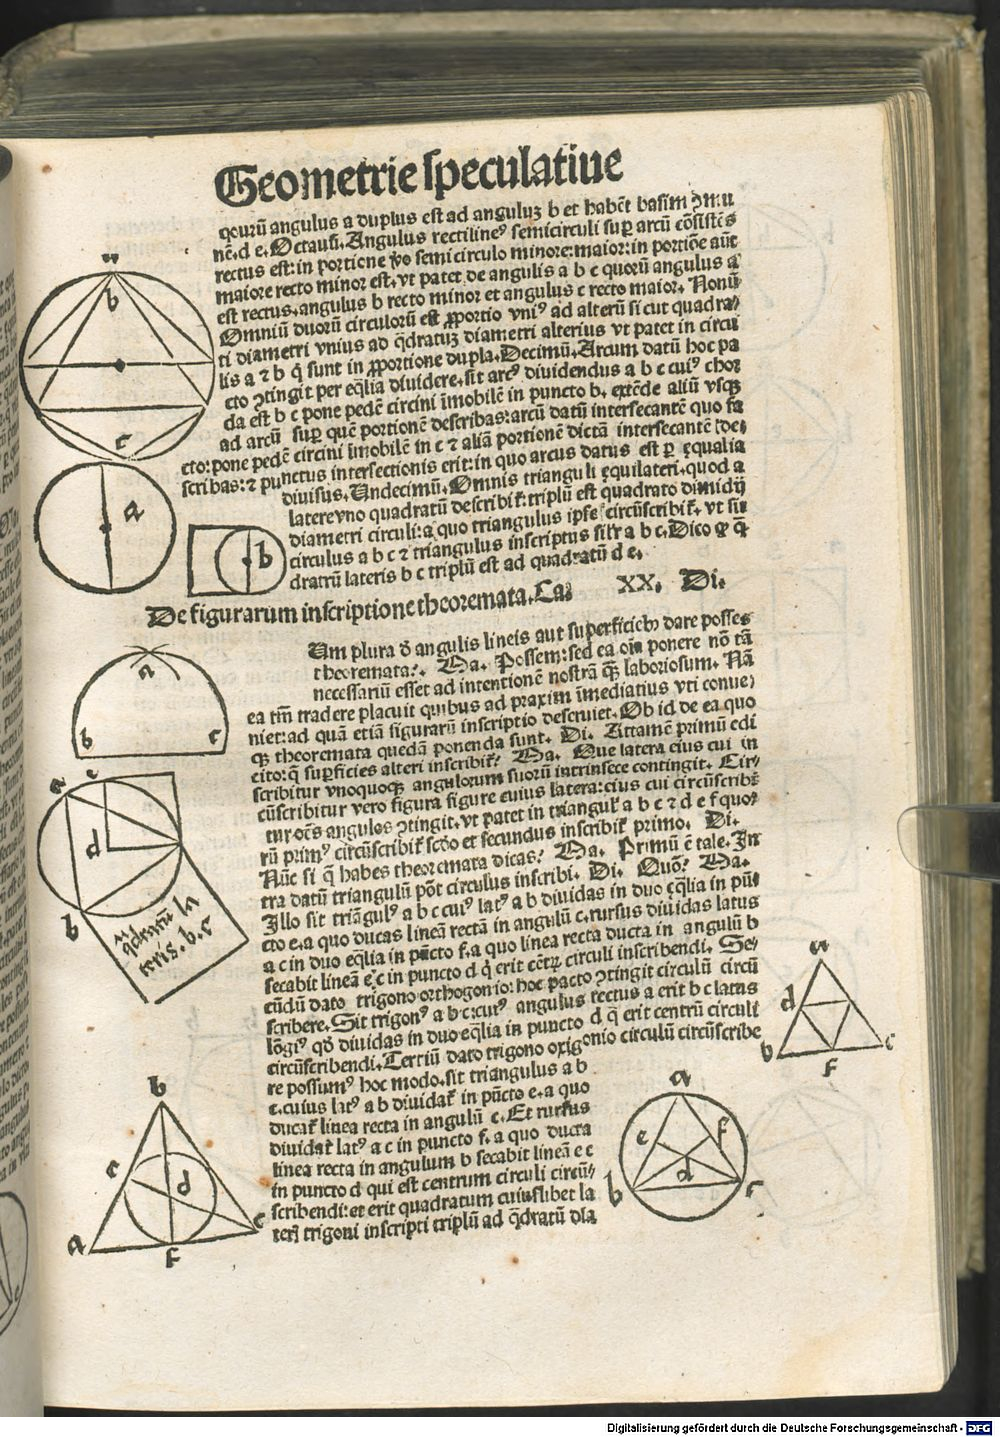 Geometrie speculatiue
quorū angulus a duplus est ad anguluʒ b et habēt basim ɔmu
nē. d e. Octauū. Angulus rectilineꝰ semicirculi suꝑ arcū cōsistēs
rectus est: in portione ꝟo semicirculo minore: maior: in portiōe aūt
maiore recto minor est. vt patet de angulis a b c quorū angulus a
est rectus. angulus b recto minor et angulus c recto maior. Nonū
Omniū duorū circulorū est ꝓportio vniꝰ ad alterū sicut quadra⸗
ti diametri vnius ad q̄dratuʒ diametri alterius vt patet in circu
lis a ⁊ b q̄ sunt in ꝓportione dupla. Decimū. Arcum datū hoc pa
cto ɔtingit per eq̄lia diuidere. sit arcꝰ diuidendus a b c cuiꝰ chor
da est b c pone pedē circini īmobilē in puncto b. extēde aliū vsqꝫ
ad arcū suꝑ quē portionē describas: arcū datū intersecantē quo fa
cto: pone pedē circini īmobilē in c ⁊ aliā portionē dictā intersecantē de⸗
scribas: ⁊ punctus intersectionis erit: in quo arcus datus est ꝑ equalia
diuisus. Undecimū. Omnis trianguli equilateri. quod a
latere vno quadratū describit᷑: triplū est quadrato dimidij
diametri circuli: a quo triangulus ipse circūscribit᷑. vt sit
circulus a b c ⁊ triangulus inscriptus sil'r a b c. Dico ꝙ q̄
dratum lateris b c triplū est ad quadratū d e.
De figurarum inscriptione theoremata. Ca. XX. Di.
Um plura d' angulis lineis aut superficiebꝰ dare posses
theoremata? Ma. Possem: sed ea oīa ponere nō tā
necessariū esset ad intentionē nostrā qꝫ laboriosum. Nā
ea tm̄ tradere placuit quibus ad praxim īmediatius vti conue⸗
niet: ad quā etiā figurarū inscriptio deseruiet. Ob id de ea quo
qꝫ theoremata quedā ponenda sunt. Di. Attamē primū edi
cito: q̄ suꝑficies alteri inscribit᷑? Ma. Que latera eius cui in
scribitur vnoquoqꝫ angulorum suorū intrinsece contingit. Cir⸗
cūscribitur vero figura figure cuius latera: eius cui circūscribi
tur oēs angulos ɔtingit. vt patet in triangul' a b c ⁊ d e f quo⸗
rū primꝰ circūscribit᷑ scdo et secundus inscribit᷑ primo. Di.
Nūc si q̄ habes theoremata dicas? Ma. Primū ē tale. In
tra datū triangulū pōt circulus inscribi. Di. Quō? Ma.
Illo sit triāgulꝰ a b c cuiꝰ latꝰ a b diuidas in duo eq̄lia in pū⸗
cto e. a quo ducas lineā rectā in angulū c. rursus diuidas latus
a c in duo eq̄lia in pūcto f. a quo linea recta ducta in angulū b
secabit lineā e c in puncto d q̇ erit cētꝝ circuli inscribendi. Se⸗
cūdū dato trigono orthogonio: hoc pacto ɔtingit circulū circū
scribere. Sit trigonꝰ a b c: cuiꝰ angulus rectus a erit b c latus
lōgiꝰ qd' diuidas in duo eq̄lia in puncto d q̇ erit centrū circuli
circūscribendi. Tertiū dato trigono oxigonio circulū circūscribe
re possumꝰ hoc modo. sit triangulus a b
c. cuius latꝰ a b diuidat᷑ in pūcto e. a quo
ducat᷑ linea recta in angulū c. Et rursus
diuidat᷑ latꝰ a c in puncto f. a quo ducta
linea recta in angulum b secabit lineā e c
in puncto d qui est centrum circuli circū⸗
scribendi: et erit quadratum cuiuslibet la
teris trigoni inscripti triplū ad q̄dratū dia
a
b
c
a
b
a
b
c
a
e
d
b
q̄dratū la
teris. b. c
b
e
d
a
f
c
a
d
b
f
c
a
e
f
d
b
c
Digitalisierung gefördert durch die Deutsche Forschungsgemeinschaft - DFG